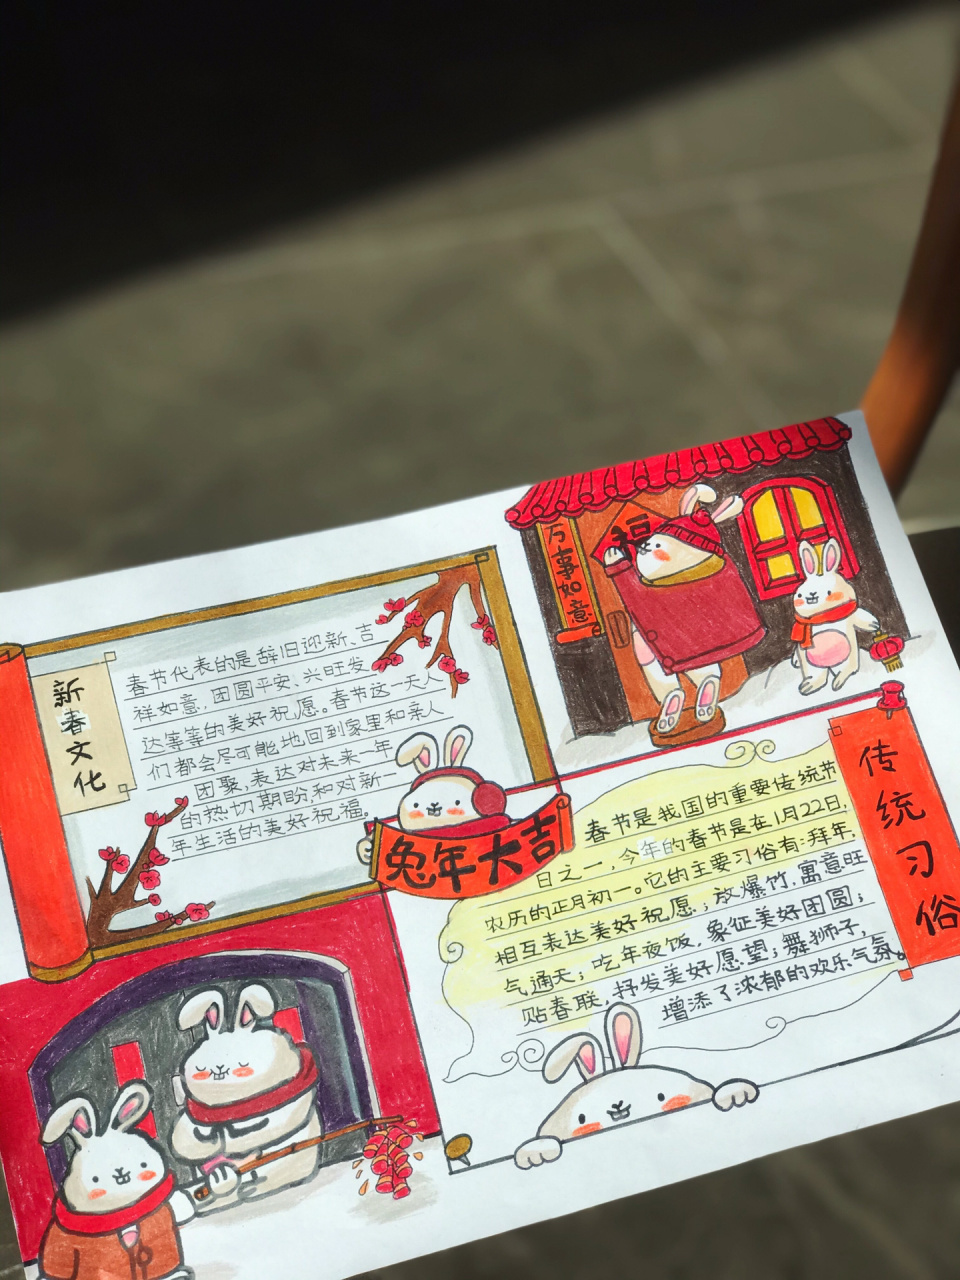 新春文化
春节代表的是辞旧迎新、吉
祥如意,团圆平安、兴旺发
达等等的美好祝愿。春节这一天人
们都会尽可能地回到家里和亲人
团聚,表达对未来一年
的热切期盼,和对新一
年生活的美好祝福。
万事如意
福
兔年大吉
传统习俗
春节是我国的重要传统节
日之一,今年的春节是在1月22日,
农历的正月初一。它的主要习俗有:拜年,
相互表达美好祝愿;放爆竹,寓意旺
气通天;吃年夜饭,象征美好团圆;
贴春联,抒发美好愿望;舞狮子,
增添了浓郁的欢乐气氛。